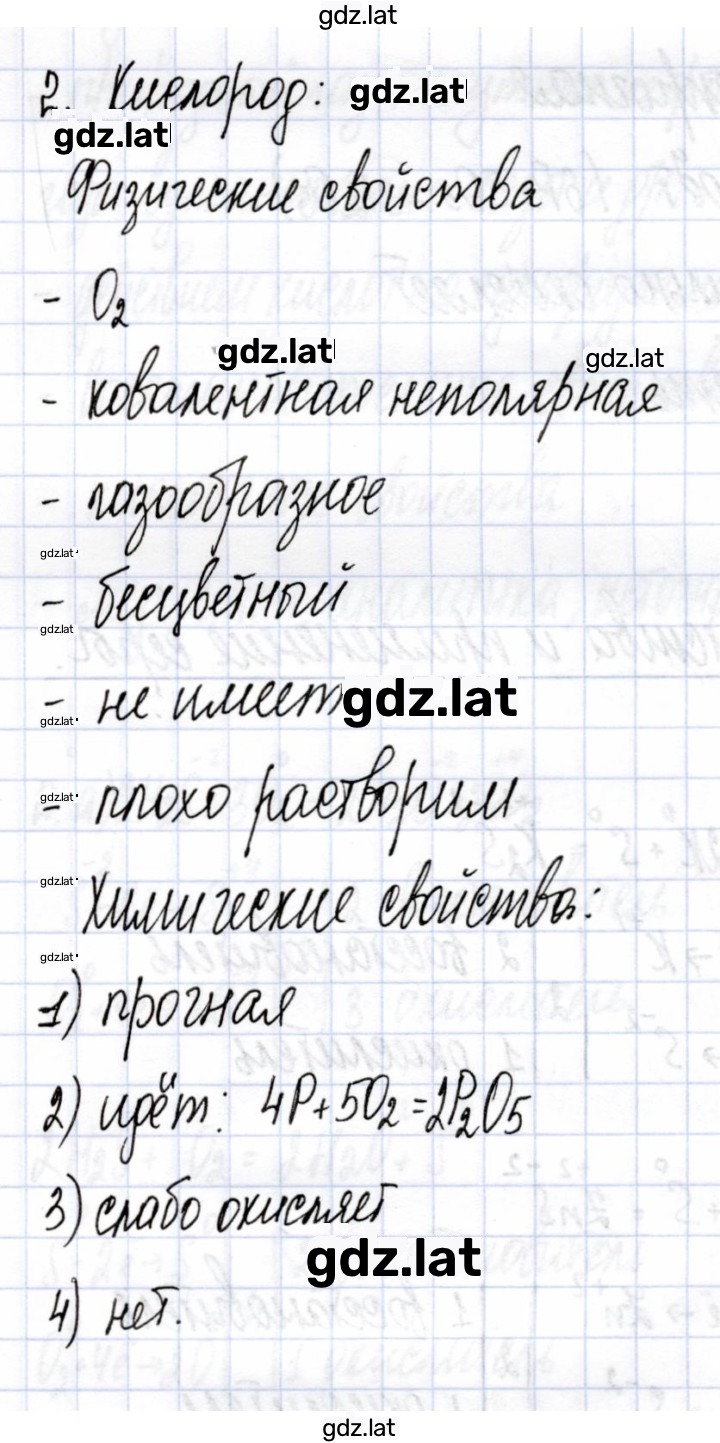 gdz.lat
2. Кислород: gdz.lat
gdz.lat
Физические свойства
- O₂
gdz.lat
gdz.lat
- ковалентная неполярная
- газообразное
gdz.lat
- бесцветный
gdz.lat
- не имеет gdz.lat
gdz.lat
- плохо растворим
gdz.lat
Химические свойства:
gdz.lat
gdz.lat
1) прочная
2) идёт: 4P+5O₂=2P₂O₅
3) слабо окисляет
gdz.lat
4) нет.
gdz.lat